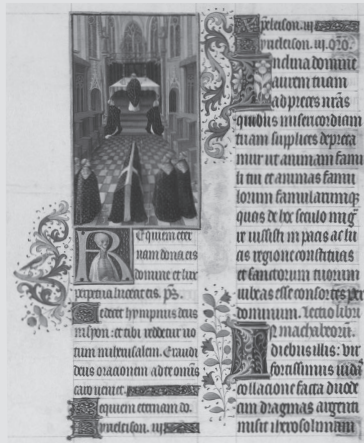 Requiem eter
nam dona eis
domine et lux
perpetua luceat eis. ps.
Te decet hympnus deus
in syon: et tibi reddetur uo
tum in iherusalem. Exaudi
deus orationem ad te omnis
caro ueniet.
Requiem eternam do.
Kyrieleison. iii
Xpeleison. iii
Kyrieleison. iii. oro.
Inclina domine
aurem tuam
ad preces nras
quibus misericordiam
tuam supplices depreca
mur ut animam famu
li tui et animas famu
lorum famularumq
quas de hoc seculo migr
re iussisti in pacis ac lu
cis regione constituas
et sanctorum tuorum
iubeas esse consortes per
dominum. Lectio libri
machabeorum.
In diebus illis: vir
fortissimus iudas
collatione facta duode
cim dragmas argenti
misit iherosolimam